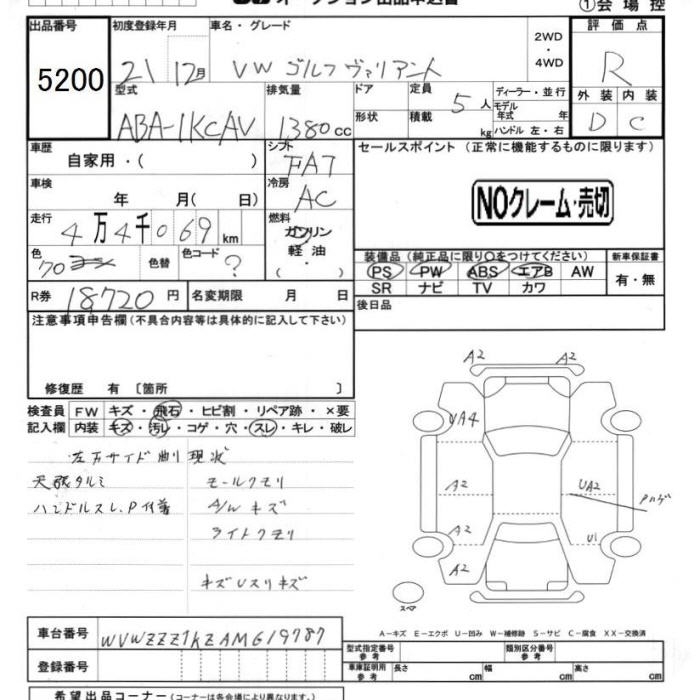 オークション出品申込書
①会場控
出品番号 初度登録年月 車名・グレード 2WD・4WD 評価点
5200 21 12月 VW ゴルフヴァリアント R
型式 排気量 ドア 定員 5人 ディーラー・並行 外装 内装
ABA-1KCAV 1380cc 形状 積載 kg モデル年式 年 ハンドル 左・右 D C
車歴 シフト セールスポイント (正常に機能するものに限ります)
自家用・( ) FA7
車検 冷房
年 月( 日) AC NOクレーム・売切
走行 燃料
4万4千069km ガソリン
色 色替 色コード 軽油・ 装備品 (純正品に限り○をつけてください) 新車保証書
70 ? ( ) PS PW ABS エアB AW 有・無
SR ナビ TV カワ
R券 18720円 名変期限 月 日 後日品
注意事項申告欄 (不具合内容等は具体的に記入して下さい)
修復歴 有 〔箇所 〕
検査員 FW キズ・飛石・ヒビ割・リペア跡・×要
記入欄 内装 キズ・汚レ・コゲ・穴・スレ・キレ・破レ
現状
天張タルミ モールクモリ
ハンドルスレ、P付着 A/Wキズ
ライトクモリ
キズUスリキズ
A2 A2
UA4
A2 UA2
Pハゲ
A2 U1
A2
スペア
A-キズ E-エクボ U-凹み W-補修跡 S-サビ C-腐食 XX-交換済
車台番号 WVWZZZ1KZAM619787
登録番号
型式指定番号 参考 類別区分番号 参考
車庫証明用 参考 長さ cm 幅 cm 高さ cm
希望出品コーナー (コーナーは各会場により異なります)